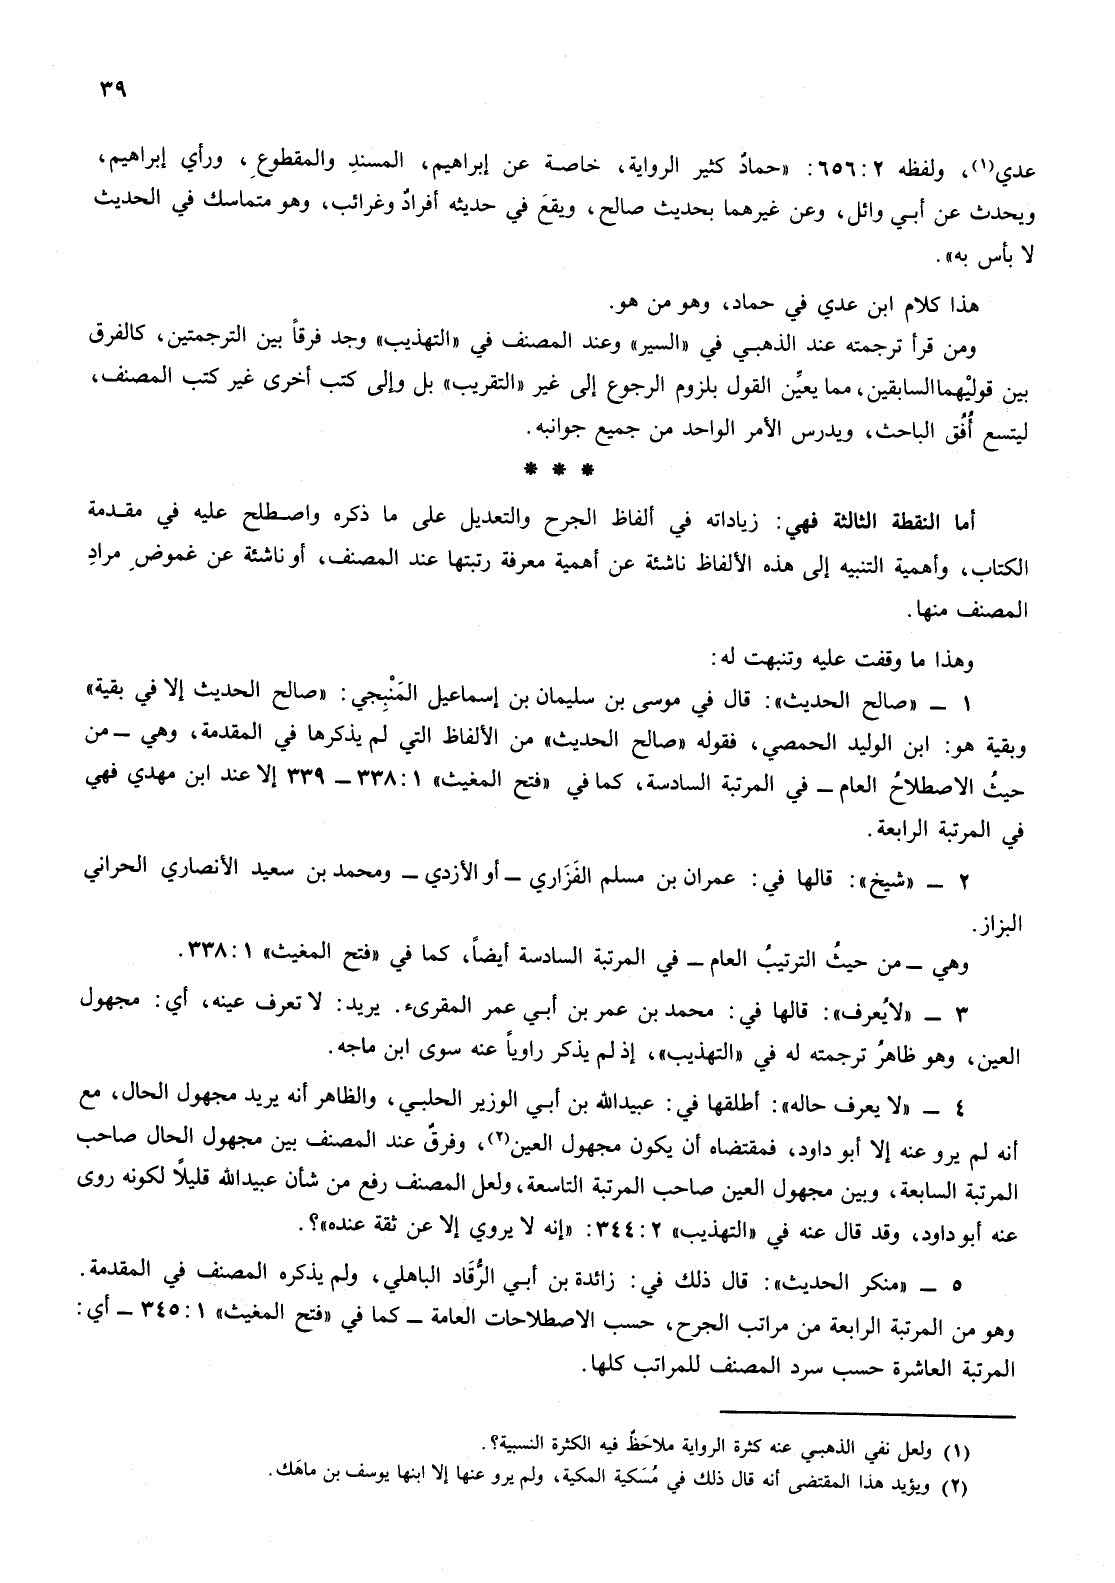 ٣٩
عدي(١)، ولفظه ٢:٦٥٦: «حمادٌ كثير الرواية، خاصة عن إبراهيم، المسندِ والمقطوعِ، ورأي إبراهيم،
ويحدث عن أبي وائل، وعن غيرهما بحديث صالح، ويقعَ في حديثه أفرادٌ وغرائب، وهو متماسك في الحديث
لا بأس به».
هذا كلام ابن عدي في حماد، وهو من هو.
ومن قرأ ترجمته عند الذهبي في «السير» وعند المصنف في «التهذيب» وجد فرقاً بين الترجمتين، كالفرق
بين قوليْهما السابقين، مما يعيِّن القول بلزوم الرجوع إلى غير «التقريب» بل وإلى كتب أخرى غير كتب المصنف،
ليتسع أُفُق الباحث، ويدرس الأمر الواحد من جميع جوانبه.
* * *
أما النقطة الثالثة فهي: زياداته في ألفاظ الجرح والتعديل على ما ذكره واصطلح عليه في مقدمة
الكتاب، وأهمية التنبيه إلى هذه الألفاظ ناشئة عن أهمية معرفة رتبتها عند المصنف، أو ناشئة عن غموضِ مرادِ
المصنف منها.
وهذا ما وقفت عليه وتنبهت له:
١ ــ «صالح الحديث»: قال في موسى بن سليمان بن إسماعيل المَنْبِجي: «صالح الحديث إلا في بقية»
وبقية هو: ابن الوليد الحمصي، فقوله «صالح الحديث» من الألفاظ التي لم يذكرها في المقدمة، وهي ــ من
حيثُ الاصطلاحُ العام ــ في المرتبة السادسة، كما في «فتح المغيث» ١:٣٣٨ ــ ٣٣٩ إلا عند ابن مهدي فهي
في المرتبة الرابعة.
٢ ــ «شيخ»: قالها في: عمران بن مسلم الفَزَاري ــ أو الأزدي ــ ومحمد بن سعيد الأنصاري الحراني
البزاز.
وهي ــ من حيثُ الترتيبُ العام ــ في المرتبة السادسة أيضاً، كما في «فتح المغيث» ١:٣٣٨.
٣ ــ «لا يُعرف»: قالها في: محمد بن عمر بن أبي عمر المقرىء. يريد: لا تعرف عينه، أي: مجهول
العين، وهو ظاهرُ ترجمته له في «التهذيب»، إذ لم يذكر راوياً عنه سوى ابن ماجه.
٤ ــ «لا يعرف حاله»: أطلقها في: عبيدالله بن أبي الوزير الحلبي، والظاهر أنه يريد مجهول الحال، مع
أنه لم يرو عنه إلا أبو داود، فمقتضاه أن يكون مجهول العين(٢)، وفرقٌ عند المصنف بين مجهول الحال صاحب
المرتبة السابعة، وبين مجهول العين صاحب المرتبة التاسعة، ولعل المصنف رفع من شأن عبيدالله قليلاً لكونه روى
عنه أبو داود، وقد قال عنه في «التهذيب» ٢:٣٤٤: «إنه لا يروي إلا عن ثقة عنده»؟.
٥ ــ «منكر الحديث»: قال ذلك في: زائدة بن أبي الرُّقَاد الباهلي، ولم يذكره المصنف في المقدمة.
وهو من المرتبة الرابعة من مراتب الجرح، حسب الاصطلاحات العامة ــ كما في «فتح المغيث» ١:٣٤٥ ــ أي:
المرتبة العاشرة حسب سرد المصنف للمراتب كلها.
(١) ولعل نفي الذهبي عنه كثرة الرواية ملاحَظٌ فيه الكثرة النسبية؟.
(٢) ويؤيد هذا المقتضى أنه قال ذلك في مُسَكية المكية، ولم يرو عنها إلا ابنها يوسف بن ماهَك.